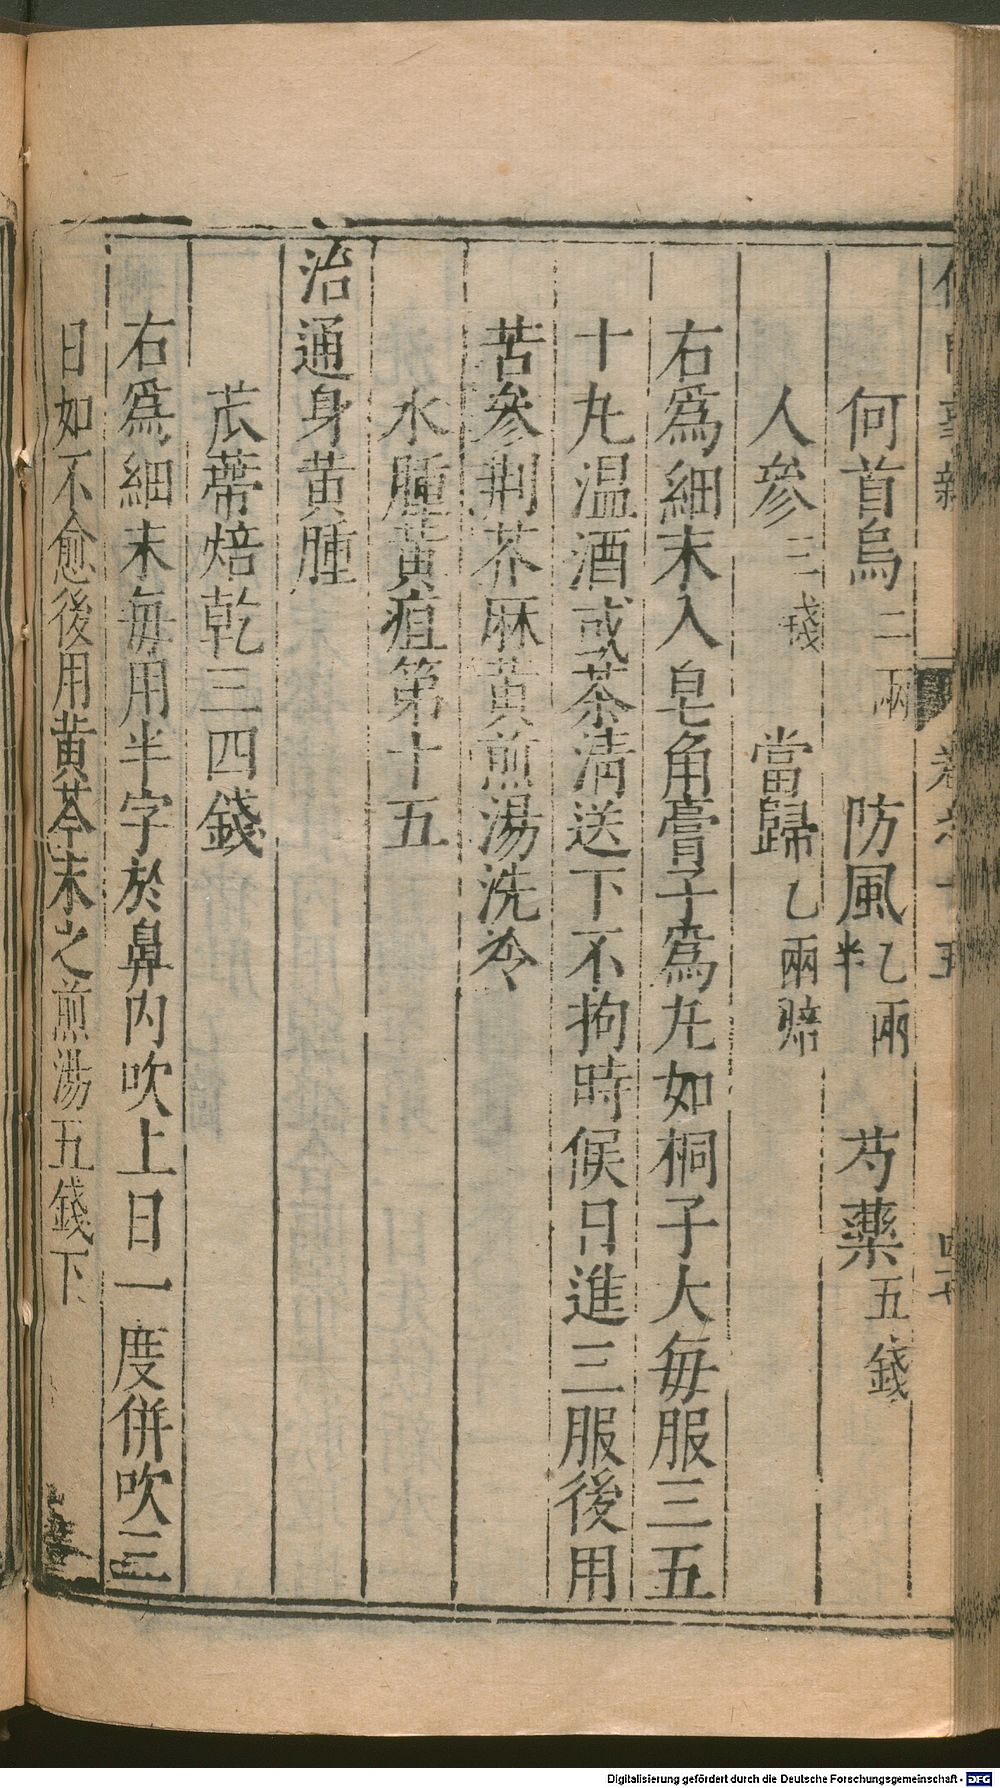 何首烏二兩 防風乙兩半 芍藥五錢
人參三錢 當歸乙兩焙
右爲細末入皂角膏子爲丸如桐子大每服三五
十丸温酒或茶清送下不拘時候日進三服後用
苦參荆芥麻黄煎湯洗冷
水腫黄疸第十五
治通身黄腫
苽蔕焙乾三四錢
右爲細末每用半字於鼻内吹上日一度併吹三
日如不愈後用黄芩末之煎湯五錢下
Digitalisierung gefördert durch die Deutsche Forschungsgemeinschaft - DFG